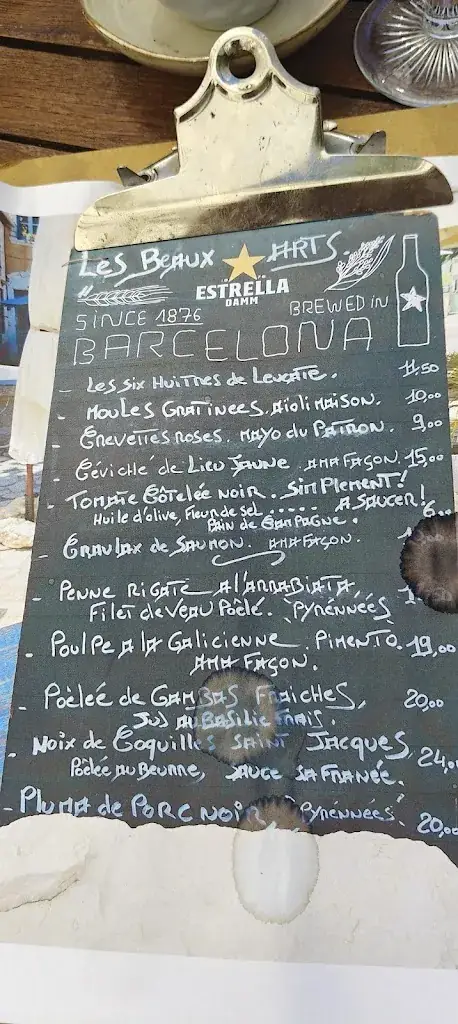 Les Beaux ARTS.
ESTRELLA
DAMM
SINCE 1876
BREWED IN
BARCELONA
- Les six Huitres de Leucate. 11,50
- Moules Gratinees, Aïoli Maison. 10,00
- Crevettes roses. Mayo du Patron. 9,00
- Céviché de Lieu Jaune. AMA FAÇON. 15,00
- Tomate Côtelée noir. Simplement!
Huile d'olive, Fleur de sel ..... A SAUCER!
Pain de CAMPAGNE. 6,00
- Gravlax de Saumon. AMA FAÇON.
- Penne Rigate A l'arrabiata,
Filet de veau Pôêlé. "Pyrénnées"
- Poulpe A la Galicienne. Pimento. 19,00
AMA FAÇON.
- Poêleé de Gambas Fraiches, 20,00
Jus au Basilic frais.
- Noix de Coquilles Saint Jacques, 24,00
Poêlée au Beurre, sauce safranée.
- Pluma de Porc noir "Pyrénnées". 20,00